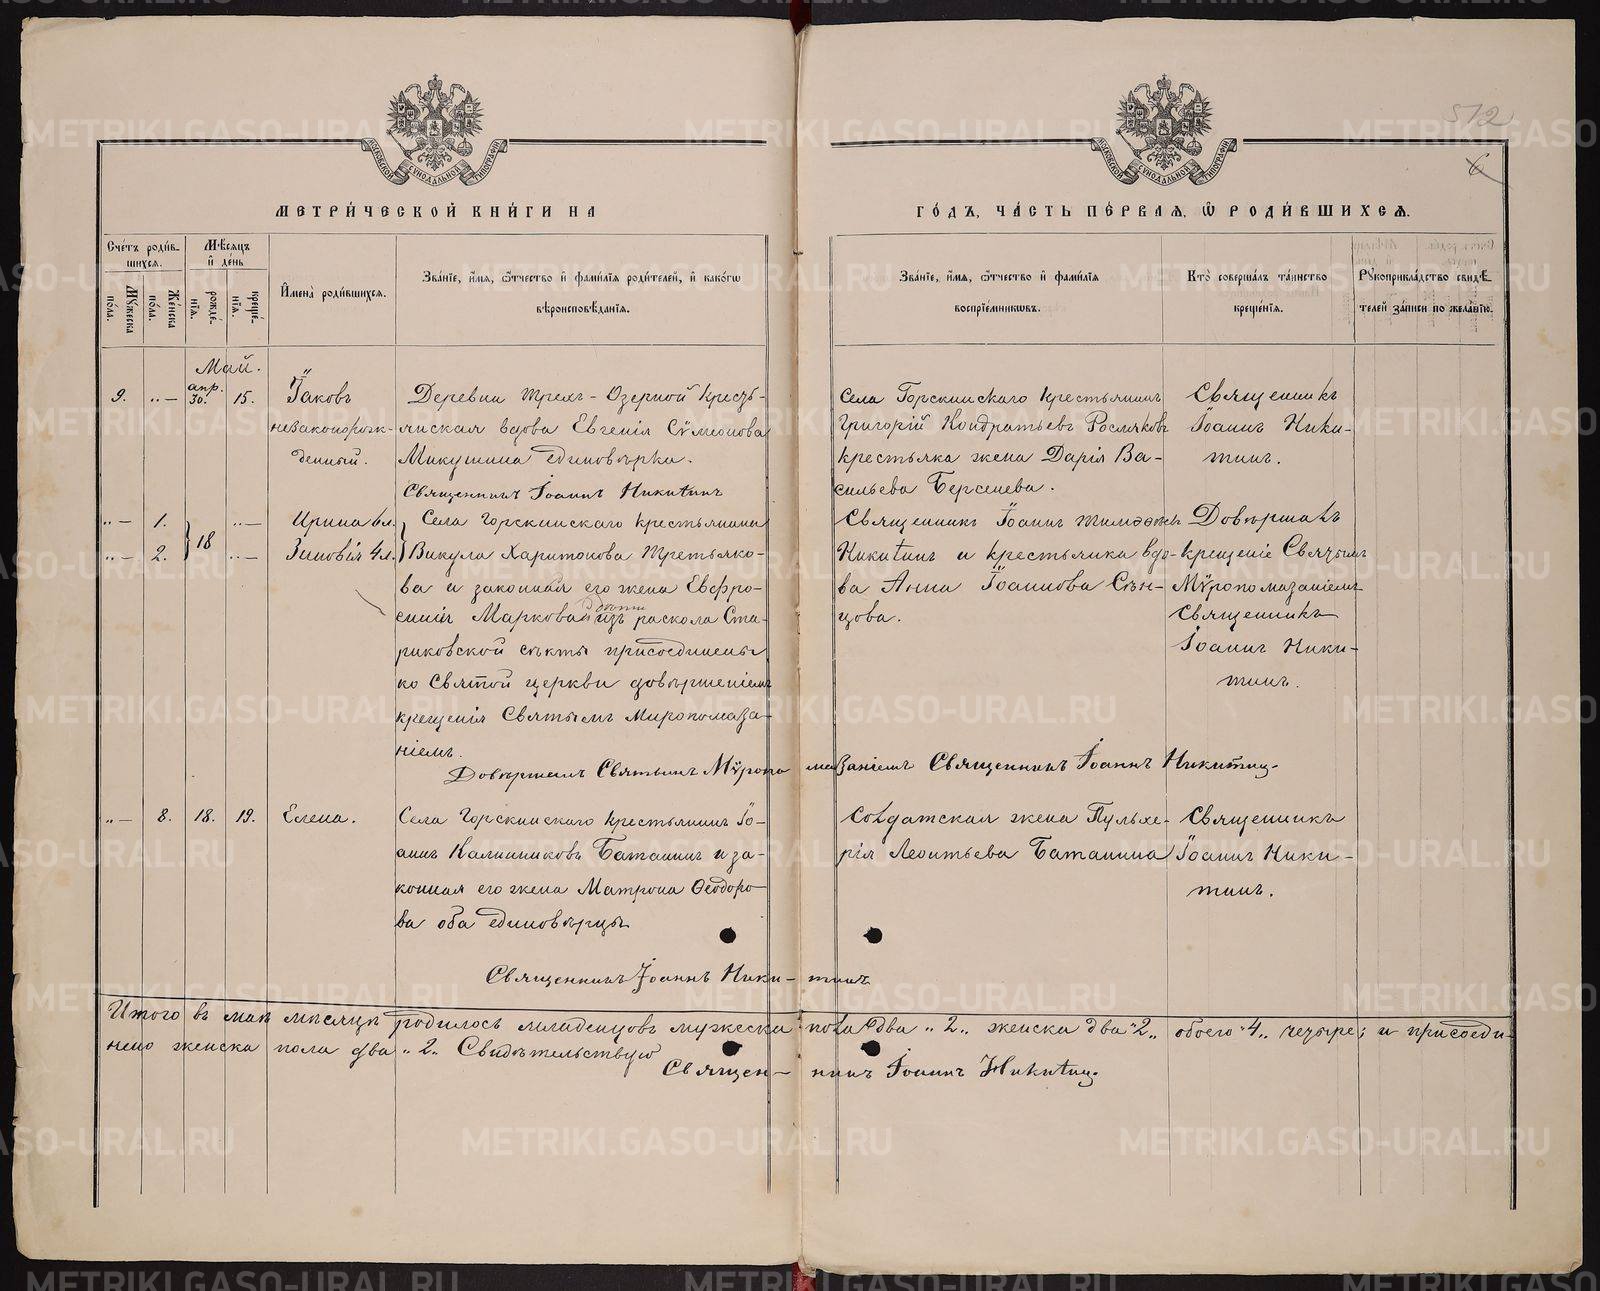 512
6
МОСКОВСКОЙ СѴНОДАЛЬНОЙ ТИПОГРАФІИ
МОСКОВСКОЙ СѴНОДАЛЬНОЙ ТИПОГРАФІИ
МЕТРИ́ЧЕСКОЙ КНИ́ГИ НА
ГО́ДЪ, ЧА́СТЬ ПЕ́РВАЯ, Ѡ РОДИ́ВШИХСЯ.
Сче́тъ роди́в-
шихся.
Му́жеска
по́ла.
Же́нска
по́ла.
Мѣ́сяцъ
и́ де́нь
рожде́-
нїя.
креще́-
нїя.
И́мена̀ роди́вшихся.
Зва́нїе, и́мя, ѻ́тчество и́ фами́лїя роди́телей, и́ како́гѡ
вѣроисповѣ́данїя.
Зва́нїе, и́мя, ѻ́тчество и́ фами́лїя
воспрїе́мникѡвъ.
Кто̀ соверша́лъ та́инство
креще́нїя.
Рꙋкоприкла́дство свидѣ́-
телей за́писи по жела́нїю.
Май.
9. „— апр. 30. 15. Іаковъ
незаконорож-
денный.
Деревни Трехъ-Озерной Кресть-
янская вдова Евгенія Сѵмеонова
Микушина единовѣрка.
Священникъ Іоаннъ Никитинъ
Села Горскинскаго крестьянинъ
Григорій Кондратьевъ Росляковъ
крестьянка жена Дарія Ва-
сильева Берсенева.
Священникъ
Іоаннъ Ники-
тинъ.
„— 1. „— Ирина 6 л.
„— 2. 18 „— Зиновія 4 л.
Села Горскинскаго крестьянина
Викула Харитонова Третьяко-
ва и законная его жена Евфро-
синіи Марковой дѣти изъ раскола Ста-
риковской секты присоединены
ко Святой церкви довершеніемъ
крещенія Святымъ Миропомаза-
ніемъ.
Священникъ Іоаннъ
Никитинъ и крестьянка вдо-
ва Анна Іоаннова Сѣн-
цова.
Довершалъ
крещеніе Святымъ
Мѵропомазаніемъ
священникъ
Іоаннъ Ники-
тинъ.
Довершалъ Святымъ Мѵропомазаніемъ Священникъ Іоаннъ Никитинъ
„— 8. 18. 19. Елена.
Села Горскинскаго крестьянинъ Іо-
аннъ Калинниковъ Баталинъ и за-
конная его жена Матрона Ѳеодоро-
ва оба единовѣрцы
Солдатская жена Пульхе-
рія Леонтьева Баталина
Священникъ
Іоаннъ Ники-
тинъ.
Священникъ Іоаннъ Ники-тинъ
Итого въ маѣ мѣсяцѣ родилось младенцовъ мужеска пола два „2„ женска два „2„ обоего „4„ четыре; и присоеди-
нено женска пола два „2„ Свидѣтельствую
Священ-никъ Іоаннъ Никитинъ.
METRIKI.GASO-URAL.RU